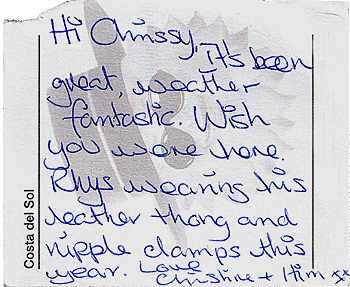 Hi Chrissy,
It's been
great, weather
fantastic. Wish
you were here.
Rhys wearing his
leather thong and
nipple clamps this
year. Love
Christine + Him xx
Costa del Sol